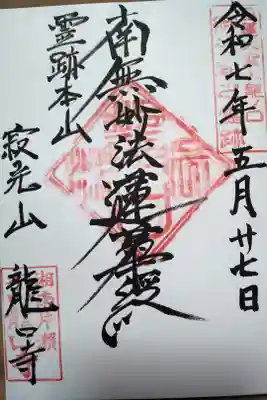 令和七年五月廿七日
南無妙法蓮華経
霊跡本山
寂光山
龍口寺